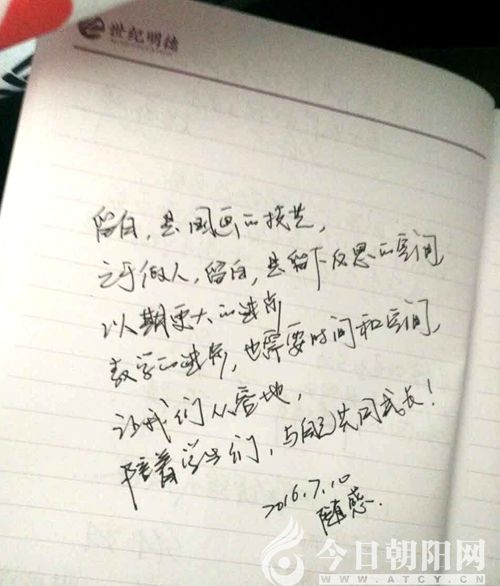 世纪明德
留白，是国画的技艺，
之于做人，留白，是留下反思的空间，
以期更大的进步
教学的进步，也需要时间和空间，
让我们从容地，
陪着学生们，与自己共同成长！
2016.7.10
随感.
今日朝阳网
WWW.ATCY.CN